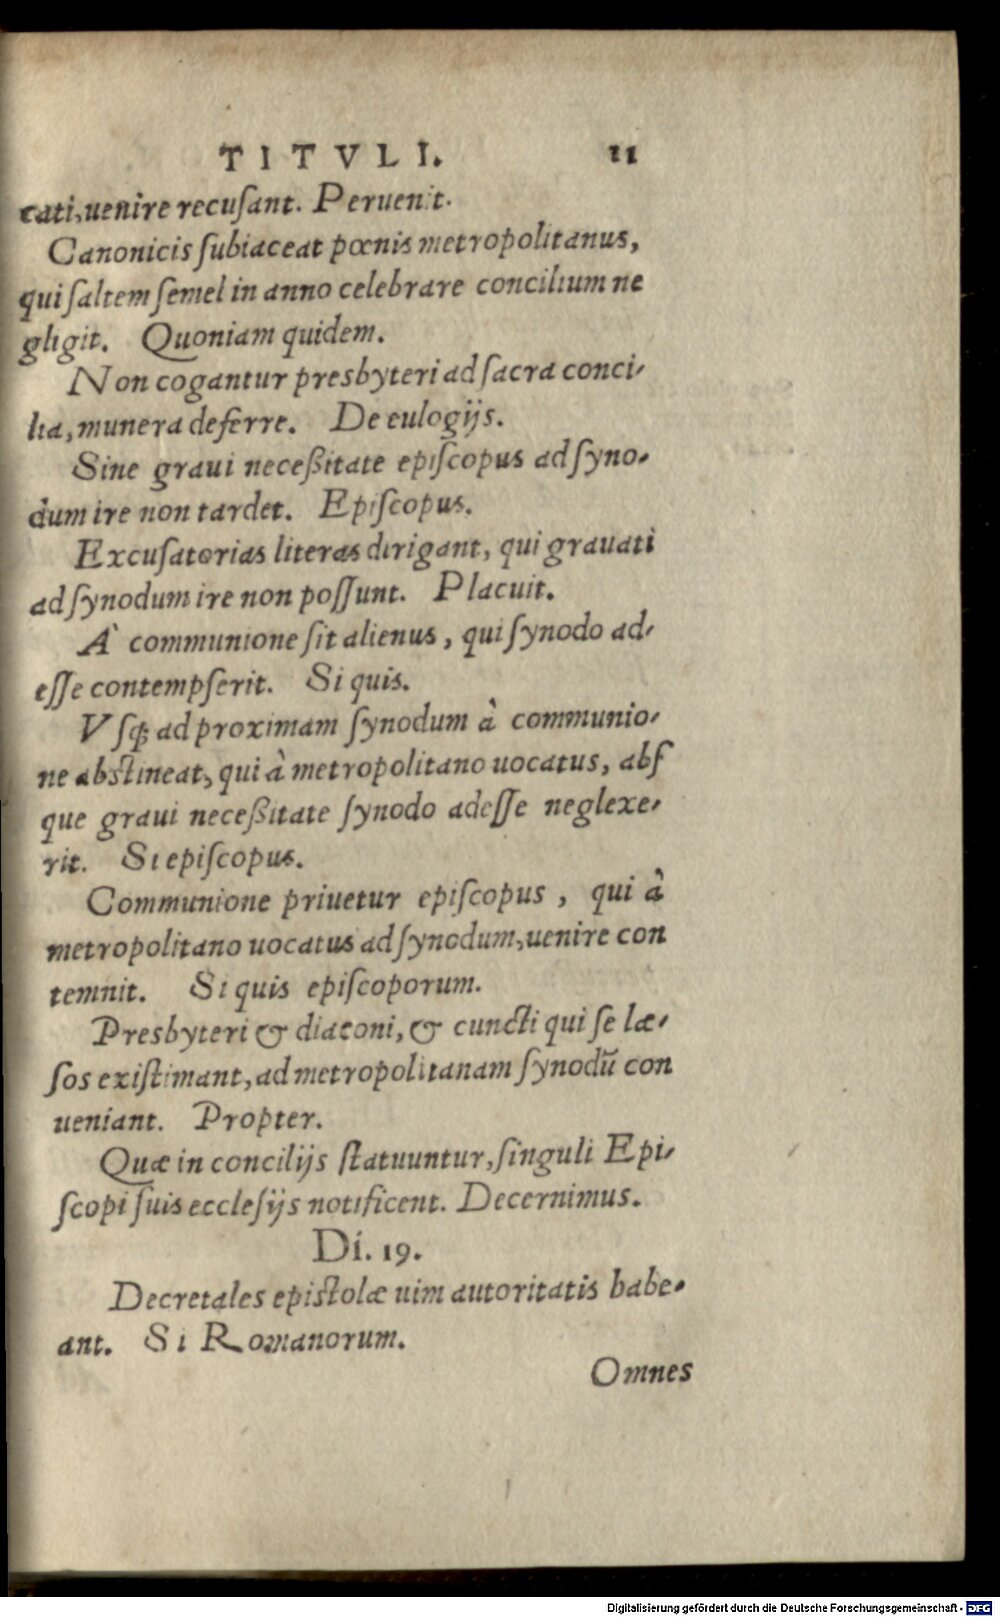 TITVLI. 11
cati, uenire recusant. Peruenit.
Canonicis ſubiaceat pœnis metropolitanus,
qui ſaltem ſemel in anno celebrare concilium ne
gligit. Quoniam quidem.
Non cogantur presbyteri ad ſacra conci-
lia, munera deferre. De eulogijs.
Sine graui neceßitate epiſcopus ad ſyno-
dum ire non tardet. Epiſcopus.
Excuſatorias literas dirigant, qui grauati
ad ſynodum ire non poſſunt. Placuit.
À communione ſit alienus, qui ſynodo ad-
eſſe contempſerit. Si quis.
Vſq; ad proximam ſynodum à communio-
ne abſtineat, qui à metropolitano uocatus, abſ
que graui neceßitate ſynodo adeſſe neglexe-
rit. Si epiſcopus.
Communione priuetur epiſcopus, qui à
metropolitano uocatus ad ſynodum, uenire con
temnit. Si quis epiſcoporum.
Presbyteri & diaconi, & cuncti qui ſe læ-
ſos exiſtimant, ad metropolitanam ſynodũ con
ueniant. Propter.
Quæ in concilijs ſtatuuntur, ſinguli Epi-
ſcopi ſuis eccleſijs notificent. Decernimus.
Di. 19.
Decretales epiſtolæ uim autoritatis habe-
ant. Si Romanorum.
Omnes
Digitalisierung gefördert durch die Deutsche Forschungsgemeinschaft - DFG